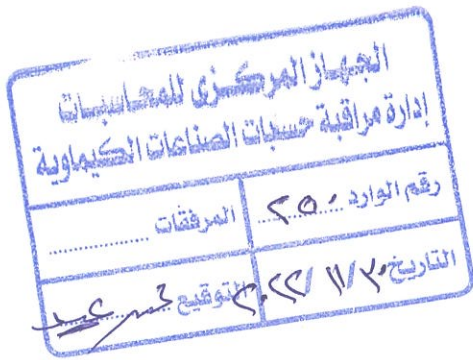 الجهاز المركزى للمحاسبات
إدارة مراقبة حسبات الصناعات الكيماوية
رقم الوارد ٢٥٠
المرفقات ..............
التاريخ ٣٠/ ١١/ ٢٠٢٢
التوقيع